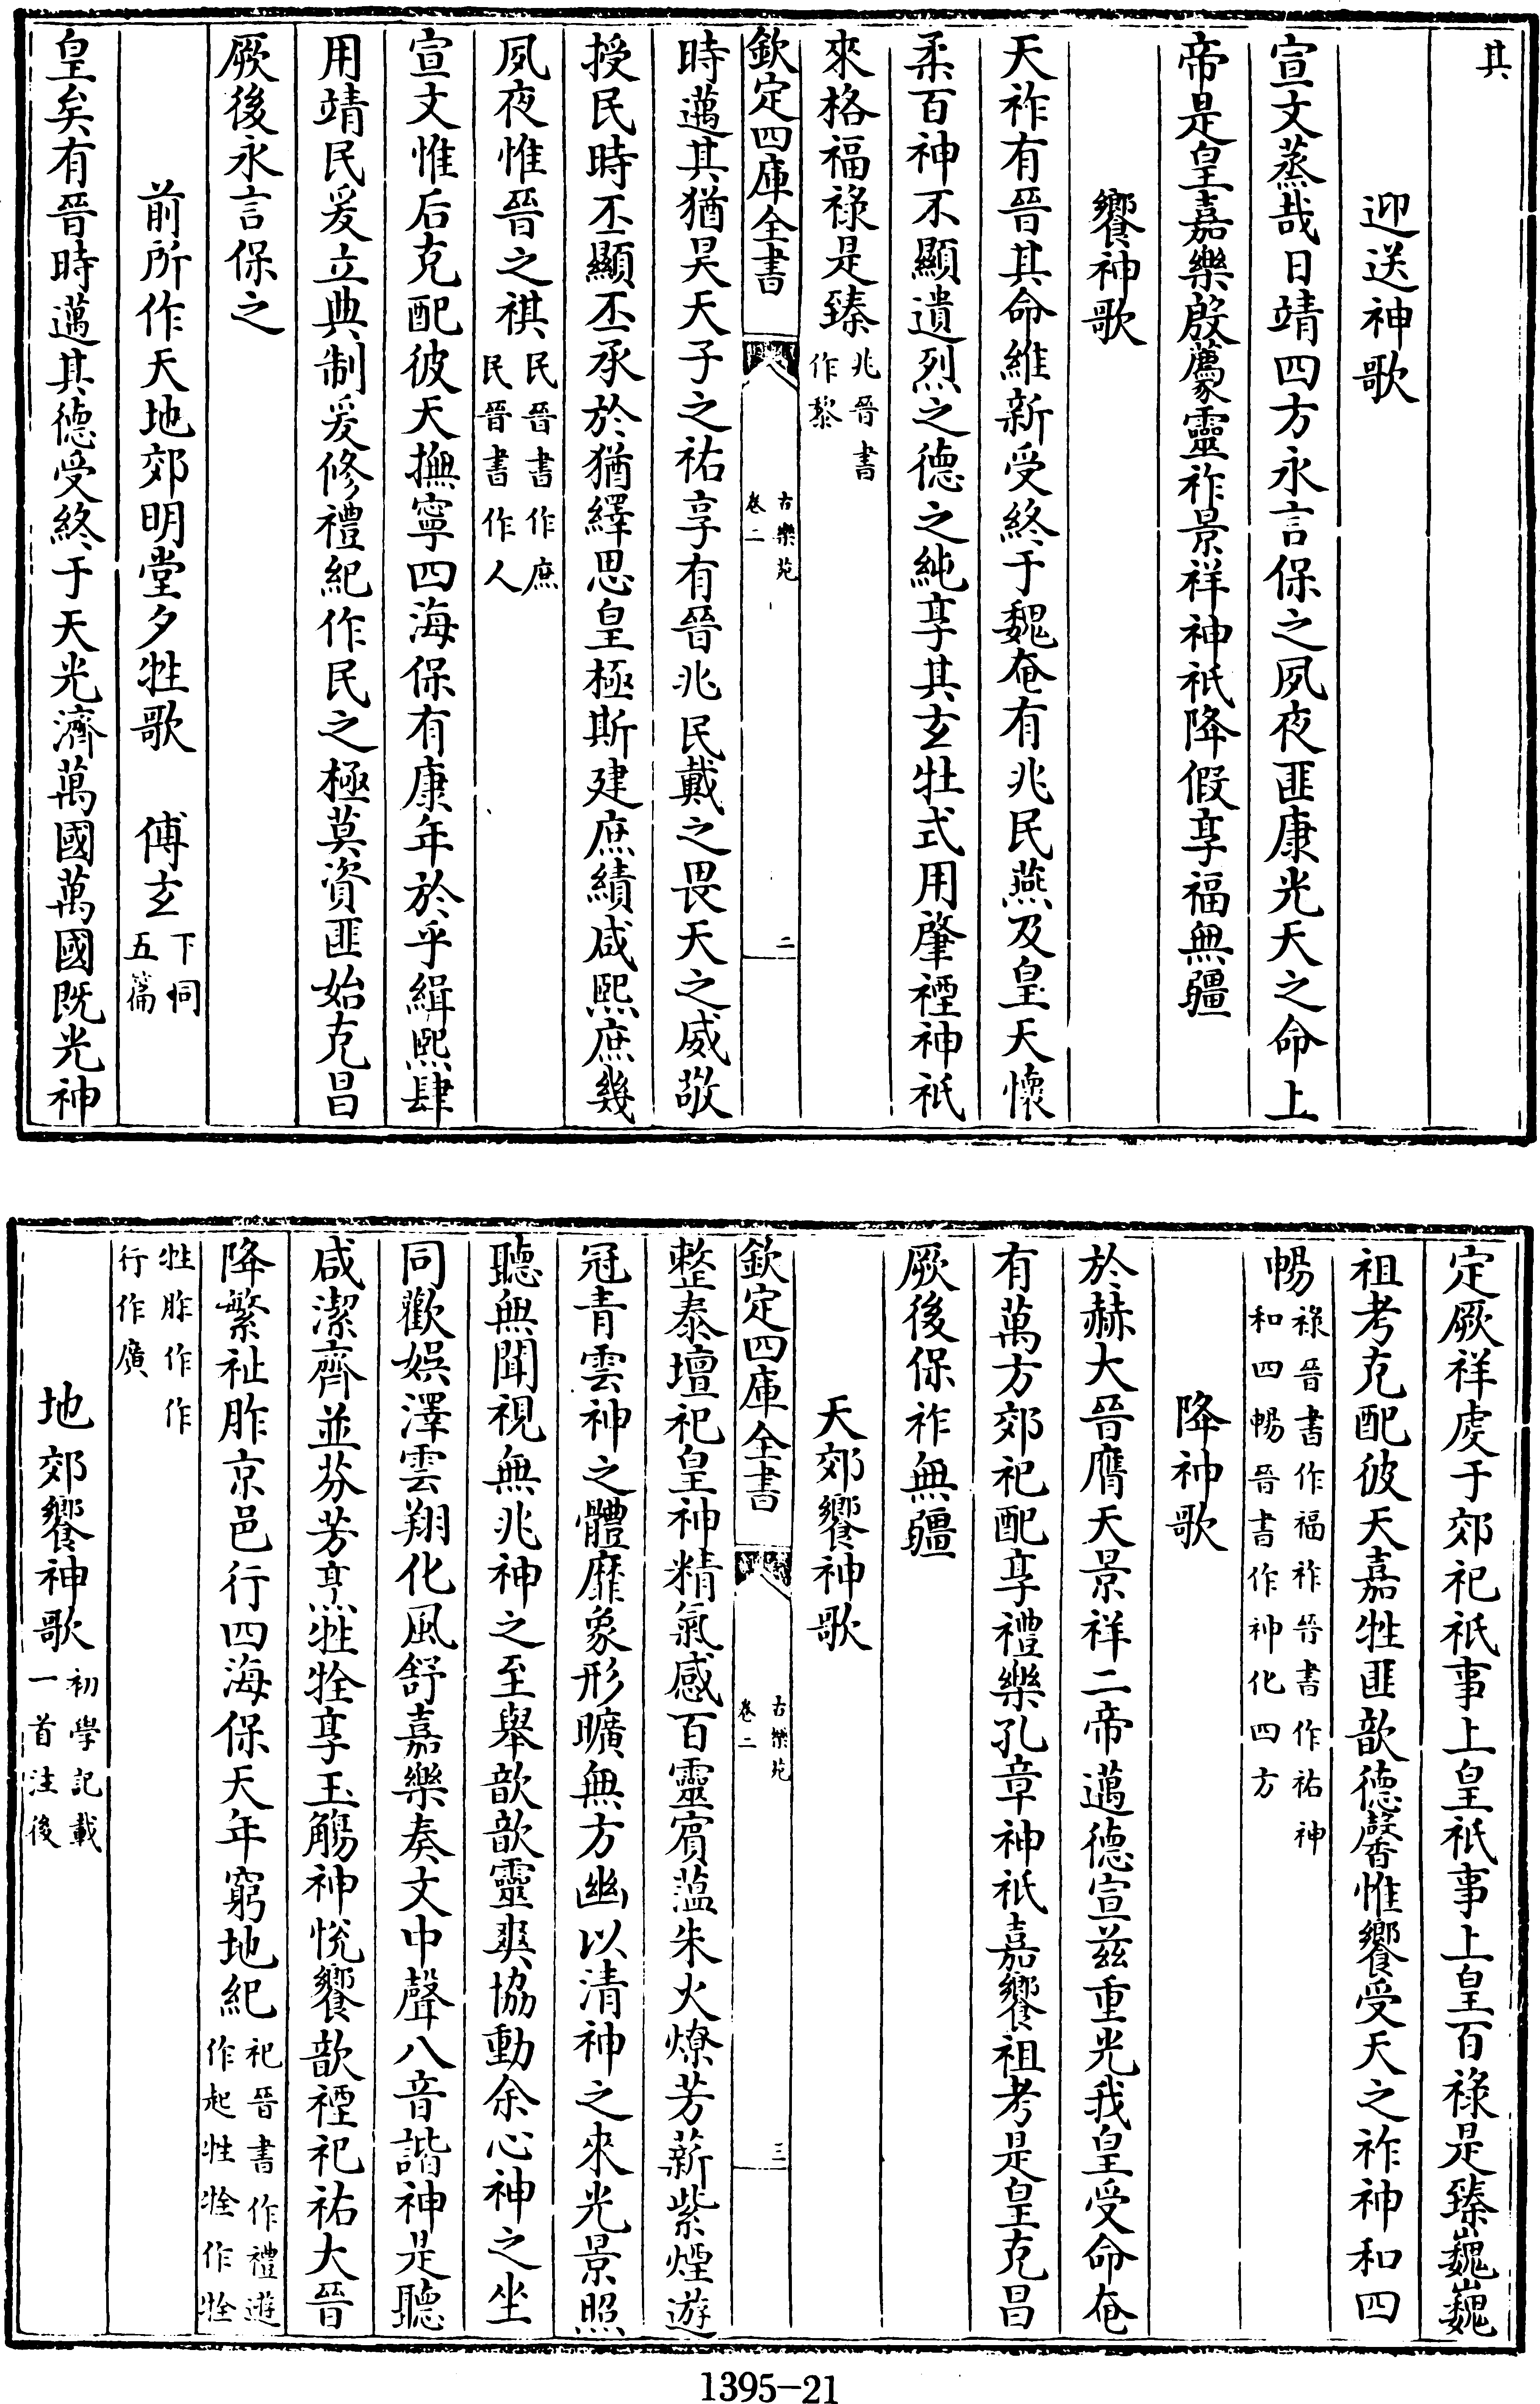 其
迎送神歌
宣文蒸哉日靖四方永言保之夙夜匪康光天之命上
帝是皇嘉樂殷薦靈祚景祥神祇降假享福無疆
饗神歌
天祚有晉其命維新受終于魏奄有兆民燕及皇天懷
柔百神不顯遺烈之德之純享其玄牡式用肇禋神祇
來格福祿是臻兆晉書
作黎
欽定四庫全書
古樂苑
卷二
二
時邁其猶昊天子之祐享有晉兆民戴之畏天之威敬
授民時丕顯丕承於猶繹思皇極斯建庶績咸熙庶幾
夙夜惟晉之祺民晉書作庶
民晉書作人
宣文惟后克配彼天撫寧四海保有康年於乎緝熙肆
用靖民爰立典制爰修禮紀作民之極莫資匪始克昌
厥後永言保之
前所作天地郊明堂夕牲歌 傅玄下同
五篇
皇矣有晉時邁其德受終于天光濟萬國萬國既光神
定厥祥虔于郊祀祇事上皇祇事上皇百祿是臻巍巍
祖考克配彼天嘉牲匪歆德馨惟饗受天之祚神和四
暢祿晉書作福祚晉書作祐神
和四暢晉書作神化四方
降神歌
於赫大晉膺天景祥二帝邁德宣茲重光我皇受命奄
有萬方郊祀配享禮樂孔章神祇嘉饗祖考是皇克昌
厥後保祚無疆
天郊饗神歌
欽定四庫全書
古樂苑
卷二
三
整泰壇祀皇神精氣感百靈賓蘊朱火燎芳薪紫煙遊
冠青雲神之體靡象形曠無方幽以清神之來光景照
聽無聞視無兆神之至舉歆歆靈爽協動余心神之坐
同歡娛澤雲翔化風舒嘉樂奏文中聲八音諧神是聽
咸潔齊並芬芳烹牲牷享玉觴神悅饗歆禋祀祐大晉
降繁祉胙京邑行四海保天年窮地紀祀晉書作禮遊
作起牲牷作牷
牲胙作作
行作廣
地郊饗神歌初學記載
一首注後
1395-21